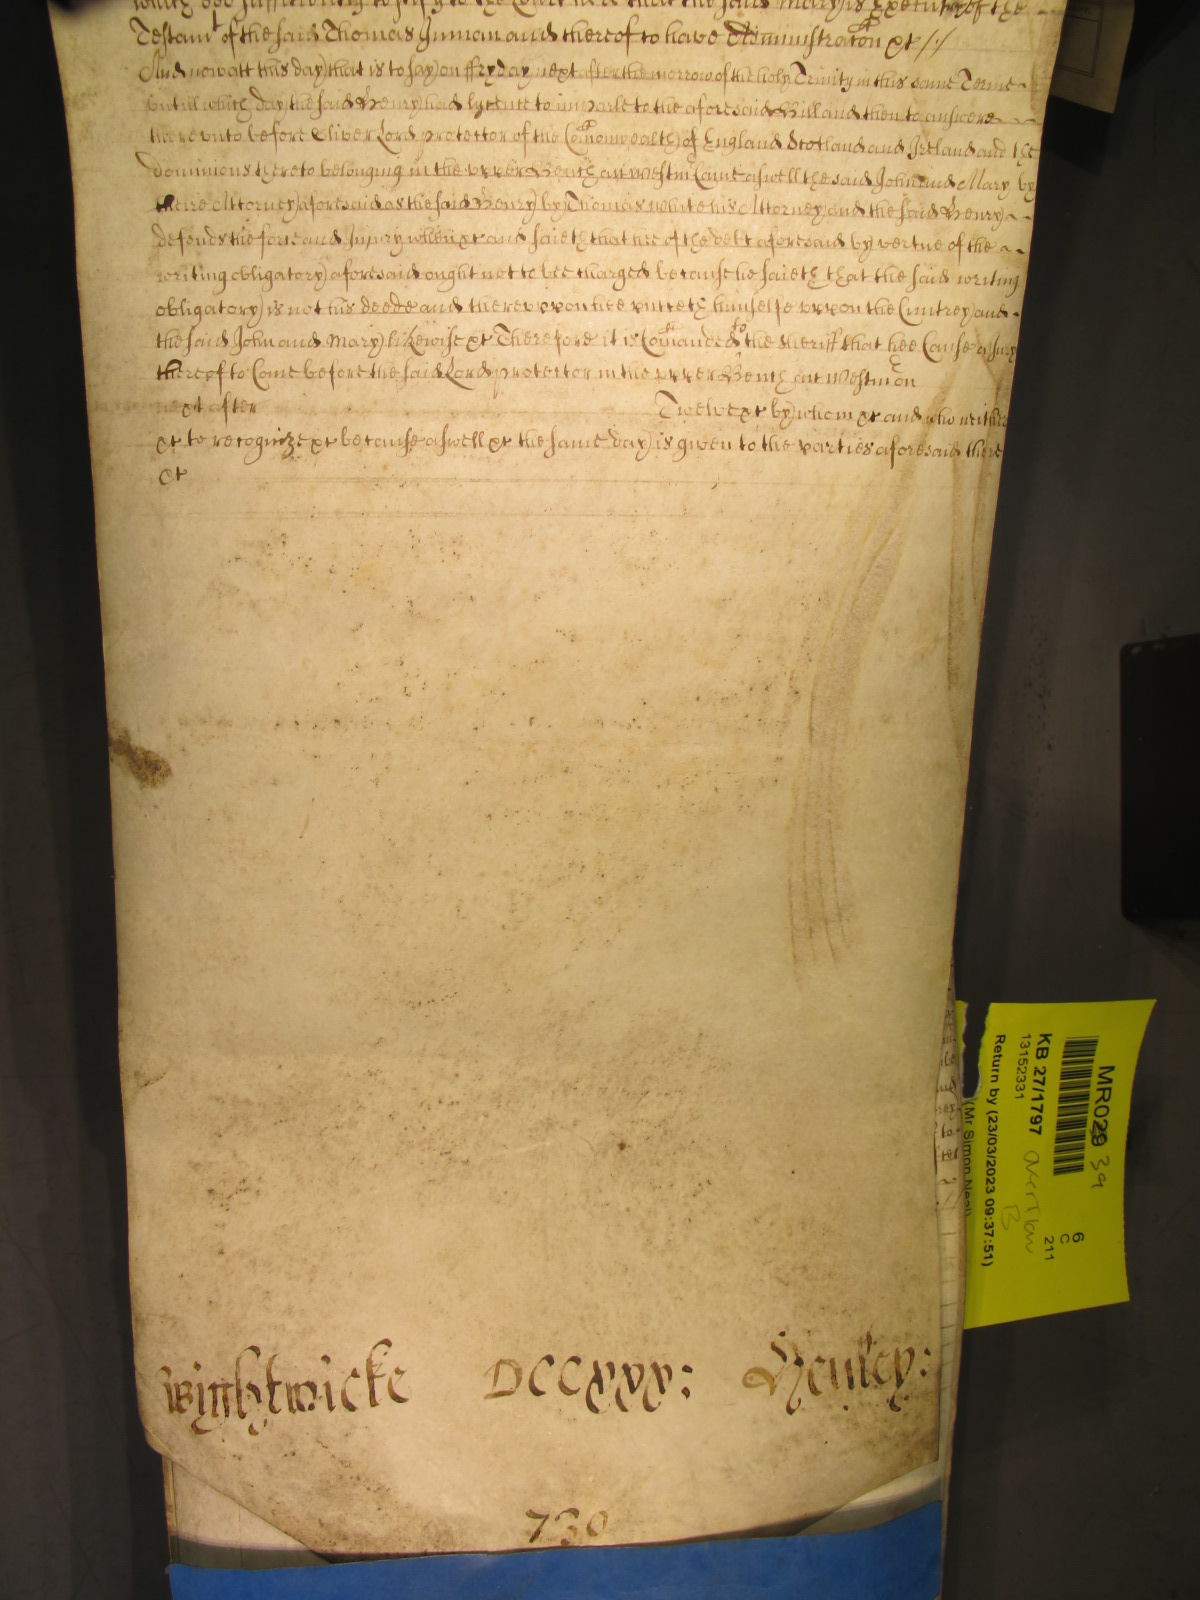 which doe sufficiently testify to the Court here that the said Mary is Executrix of the
Testamt of the said Thomas Inman and thereof to have Administracon &c /:/
And now att this day that is to say on ffryday next after the morrow of the holy Trinity in this same Terme
untill which day the said Henry had lycence to imparle to the aforesaid Bill and then to answere
thereunto before Oliver Lord protector of the Comonwealth of England Scotland and Ireland and the
dominions thereto belonging in the upper Bench att Westm Came aswell the said John and Mary by
theire Attorney aforesaid as the said Henry by Thomas White his Attorney and the said Henry
defends the force and Injury when &c and saieth that hee of the debt aforesaid by vertue of the
writing obligatory aforesaid ought not to bee charged because he saieth that the said writing
obligatory is not his deede and thereuppon hee putteth himselfe uppon the Cuntrey and
the said John and Mary likewise &c Therefore it is Comanded to the sheriff that hee Cause a Jury
thereof to Come before the said Lord protector in the upper Bench att Westm on
next after Twelve &c by whom &c and who neither
&c to recognize &c because aswell &c the same day is given to the parties aforesaid there
&c
Wightwicke DCCxxx: Henley:
730
MR029 39
KB 27/1797 overflow B
13152331
6
C
211
Return by (23/03/2023 09:37:51)
(Mr Simon Neal)